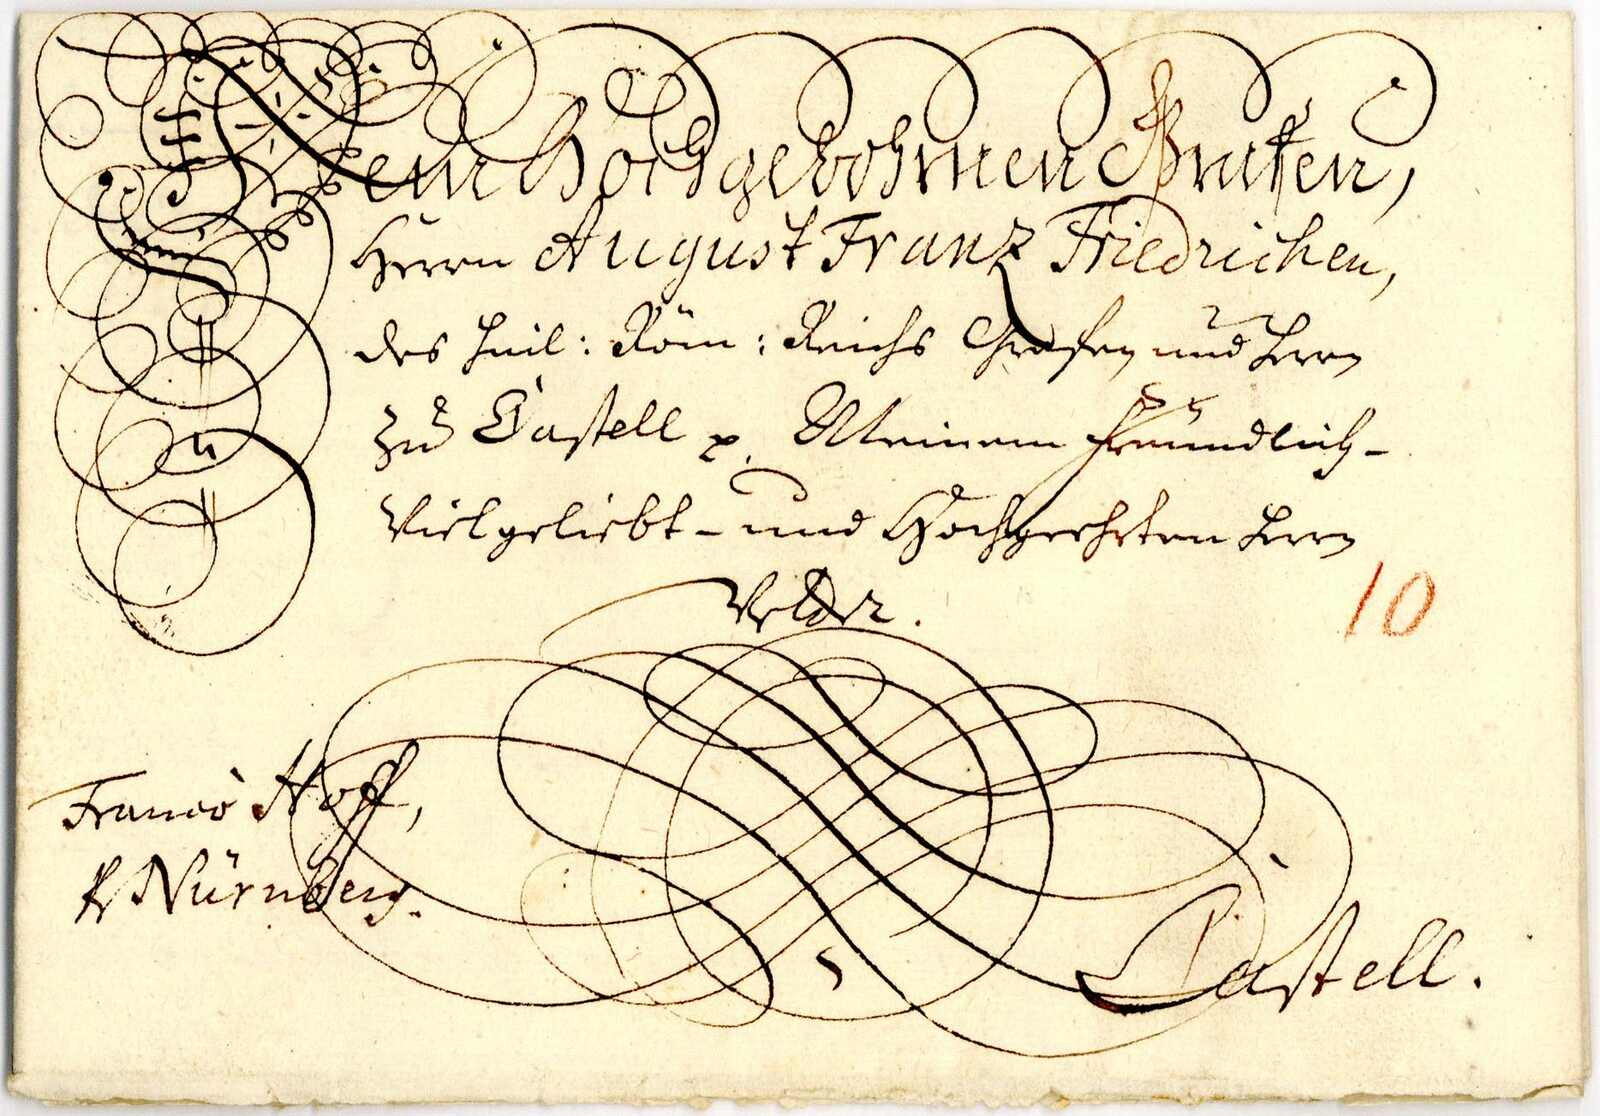 Dem Hochgebohrnen Grafen,
Herrn August Franz Friedrichen,
des Heil: Röm: Reichs Grafen und Herrn
zu Castell p. Meinem freundlich-
Vielgeliebt- und Hochgeehrten Herrn
Vetter.
10
Franco Hoff,
Nürnberg.
Castell.